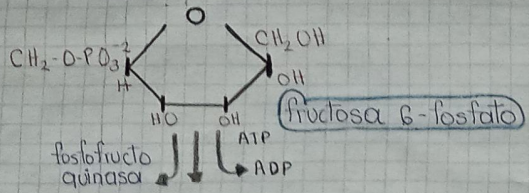 O
CH₂-O-PO₃⁻²
CH₂OH
H
OH
HO
OH
fructosa 6-fosfato
fosfofructo
quinasa
ATP
ADP